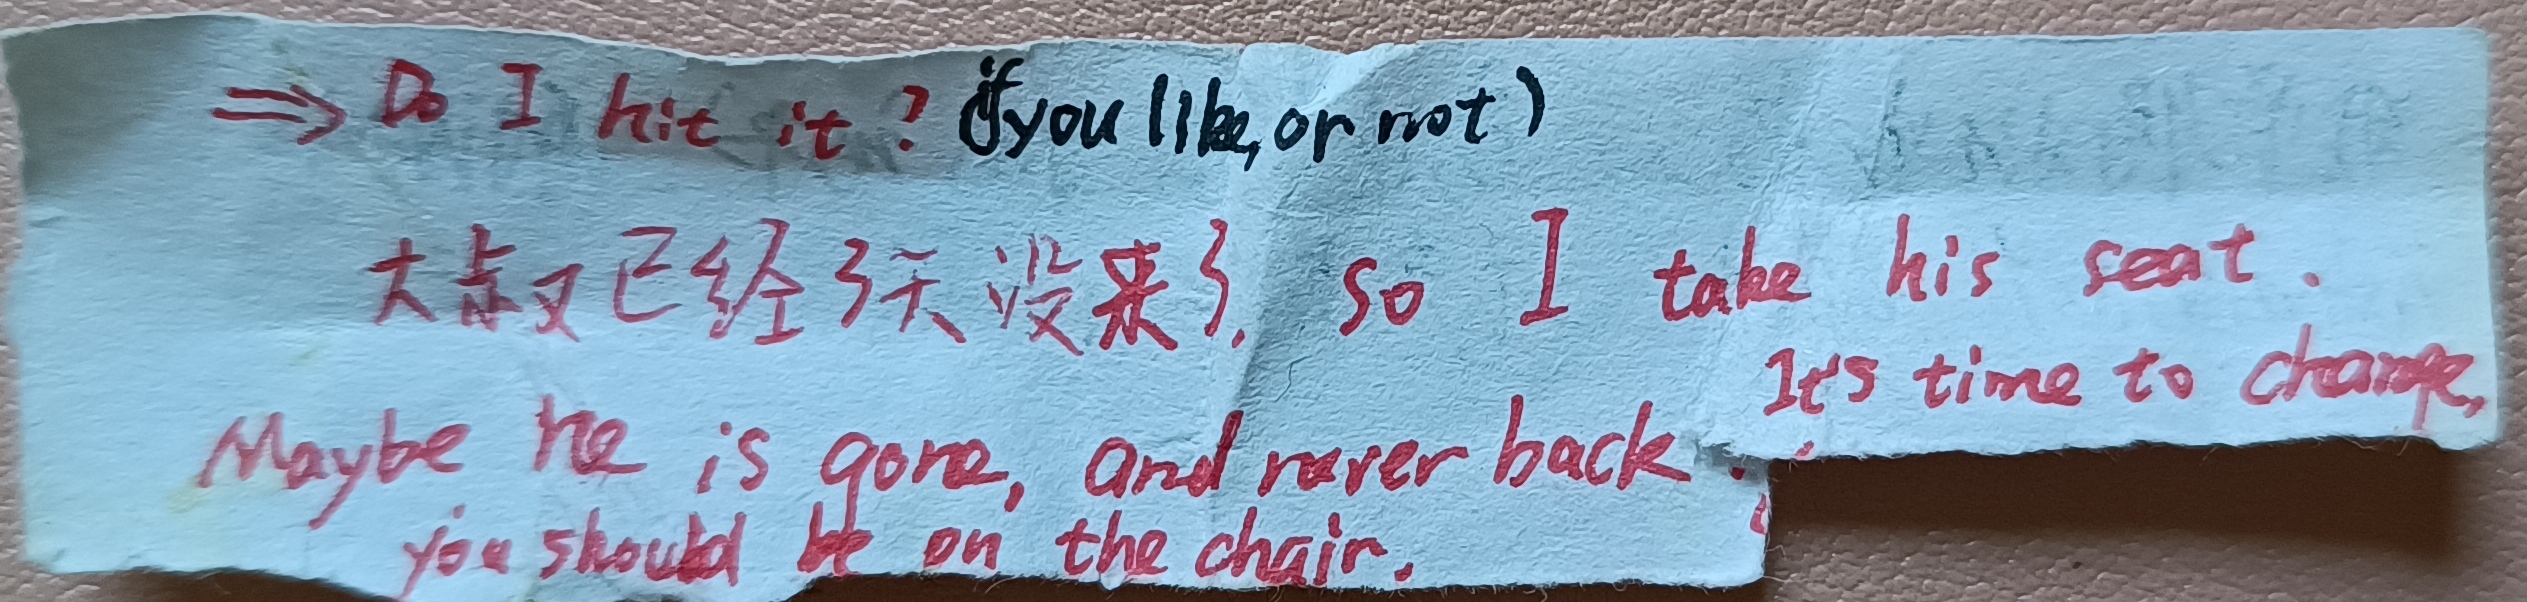 ⇒ Do I hit it? (if you like, or not)
大叔已经3天没来了, so I take his seat.
It's time to change,
Maybe he is gone, and never back.
you should be on the chair.